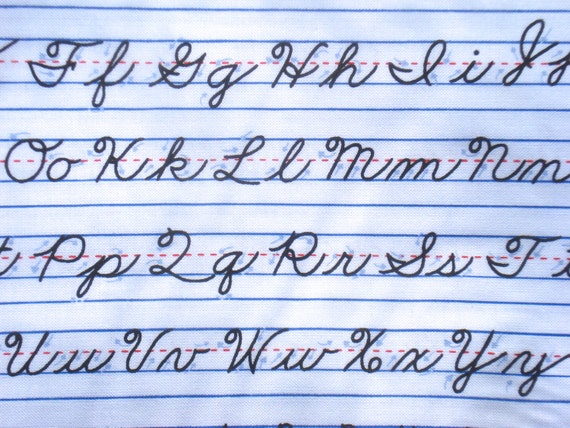 Ff Gg Hh Ii J
Oo Kk Ll Mm Nn
Pp Qq Rr Ss T
Uu Vv Ww Xx Yy